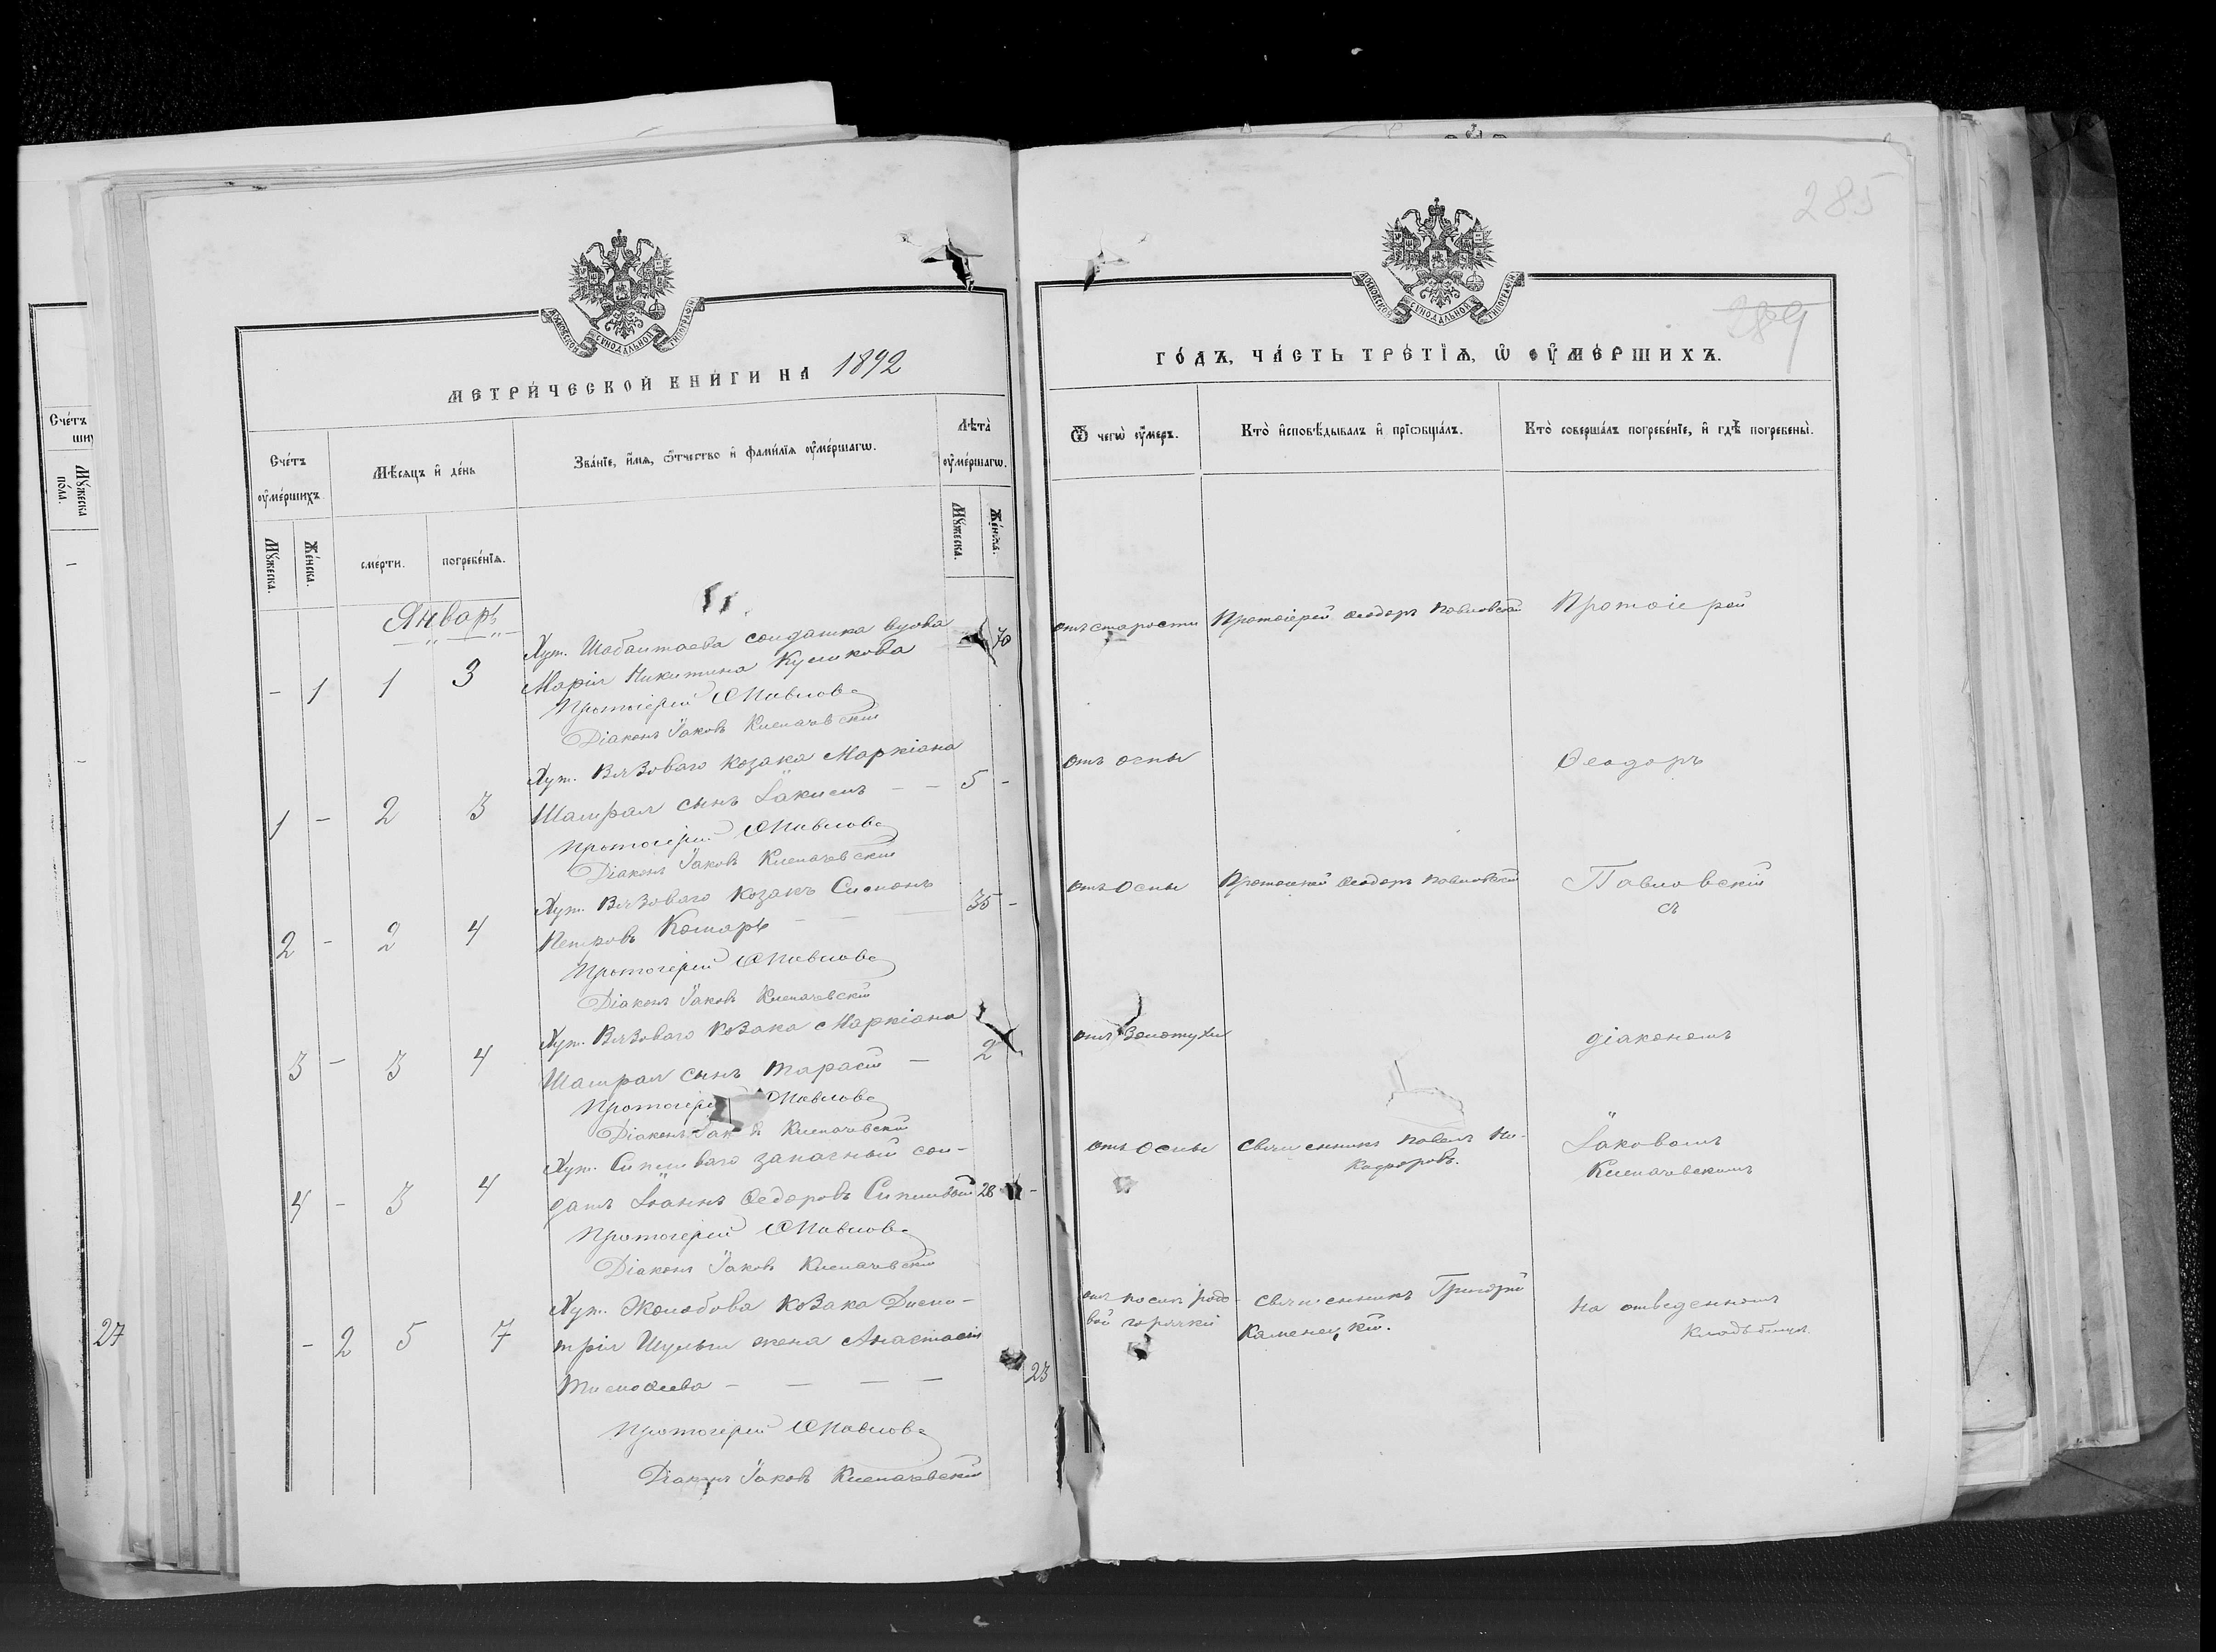 285
289
МОСКОВСКОЙ СУНОДАЛЬНОЙ ТИПОГРАФІИ
МЕТРИ́ЧЕСКОЙ КНИ́ГИ НА 1892
Счéтъ ᲂу҆мéршихъ
Мѣ́сяцъ и҆ дéнь
Звáнїе, и҆́мя, ѻ҆́тчество и҆ фамѝлїя ᲂу҆мéршагѡ.
Лѣ́та ᲂу҆мéршагѡ.
Мꙋ́жеска.
Жéнска.
смéрти.
погребéнїя.
Мꙋ́жеска.
Жéнска.
Январь
- 1 1 3
Хут. Шабалтаева солдатка вдова 70
Марія Никитина Куликова
Протоіерей Ѳ Павловс
Діаконъ Іаковъ Клепачевскій
1 - 2 3
Хут. Вязоваго козака Маркіана
Шамрая сынъ Іакимъ - - 5 -
Протоіерей Ѳ Павловс
Діаконъ Іаковъ Клепачевскій
2 - 2 4
Хут. Вязоваго козакъ Симонъ 35 -
Петровъ Комаръ - -
Протоіерей Ѳ Павловс
Діаконъ Іаковъ Клепачевскій
3 - 3 4
Хут. Вязоваго козака Маркіана
Шамрая сынъ Тарасій - 2
Протоіерей Ѳ Павловс
Діаконъ Іаковъ Клепачевскій
4 - 3 4
Хут. Сиплываго запасный сол-
датъ Іоаннъ Ѳедоровъ Сиплывый 28 -
Протоіерей Ѳ Павловс
Діаконъ Іаковъ Клепачевскій
- 2 5 7
Хут. Жолобова козака Дими-
трія Шульги жена Анастасія
Тимоѳеева - - - - 23
Протоіерей Ѳ Павловс
Діаконъ Іаковъ Клепачевскій
МОСКОВСКОЙ СУНОДАЛЬНОЙ ТИПОГРАФІИ
ГÓДЪ, ЧÁСТЬ ТРÉТЇЯ, Ѡ҆ ОУ҆МÉРШИХЪ.
Ѿ чегѡ̀ ᲂу҆́меръ.
Ктò и҆сповѣ́дывалъ и҆ прїѡбщáлъ.
Ктò совершáлъ погребéнїе, и҆ гдѣ̀ погребены̀.
отъ старости Протоіерей Ѳеодоръ Павловскій Протоіерей
отъ оспы Ѳеодоръ
отъ Оспы Протоіерей Ѳеодоръ Павловскій Павловскій
съ
отъ Золотухи діакономъ
отъ Оспы Священникъ Павелъ Ни- Іаковомъ
каноровъ. Клепачевскимъ
отъ послѣ родо- Священникъ Григорій На отведенномъ
вой горячки Каменецкій. кладбищѣ.
Счéтъ
Мꙋ́жеска пóла.
27